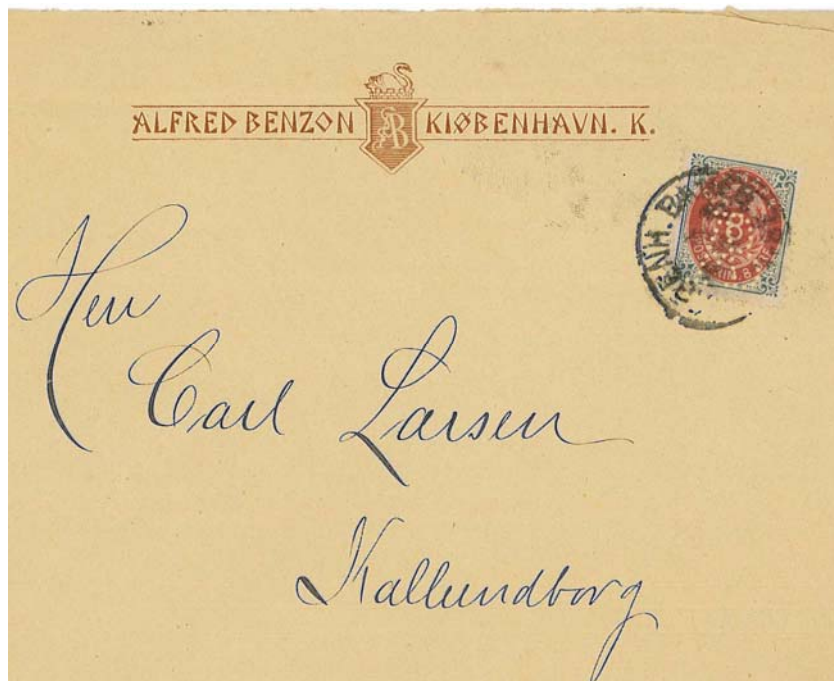 ALFRED BENZON AB KIØBENHAVN. K.
8
Herr
Carl Larsen
Kallundborg